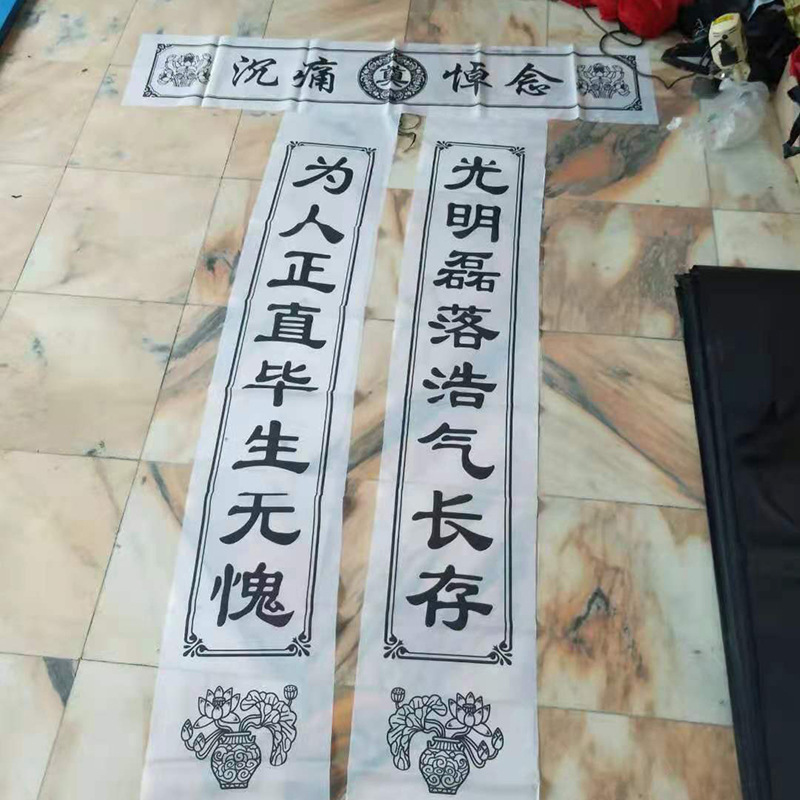 沉痛奠悼念
为人正直毕生无愧
光明磊落浩气长存